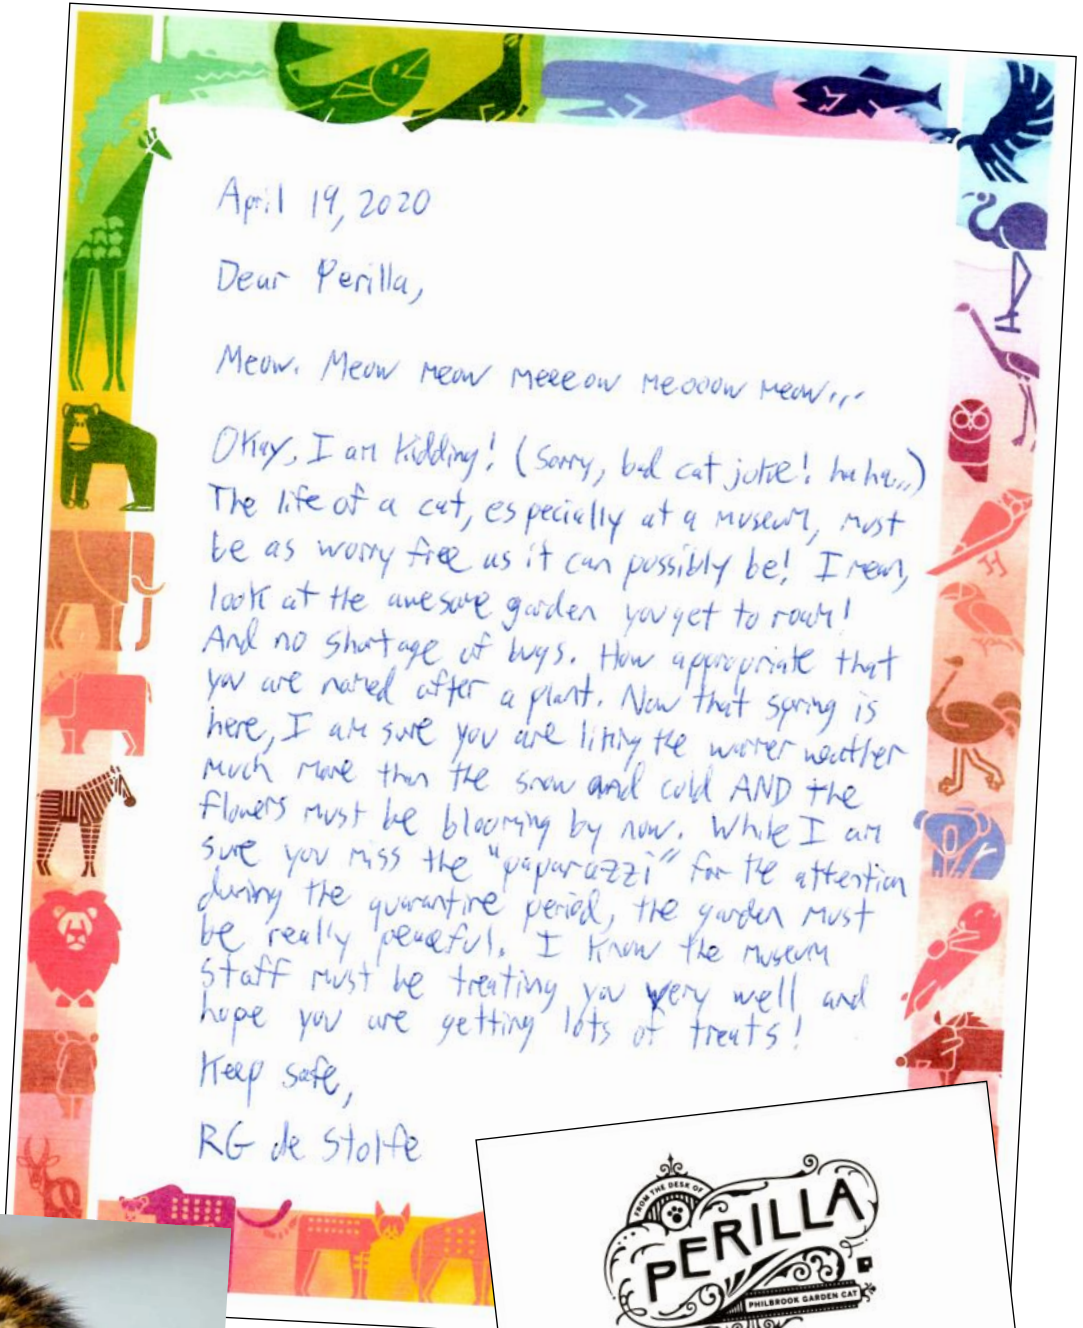 April 19, 2020
Dear Perilla,
Meow. Meow meow meeeow meooow meow...
Okay, I am kidding! (Sorry, bad cat joke! ha ha...)
The life of a cat, especially at a museum, must
be as worry free as it can possibly be! I mean,
look at the awesome garden you get to roam!
And no shortage of bugs. How appropriate that
you are named after a plant. Now that spring is
here, I am sure you are liking the warmer weather
much more than the snow and cold AND the
flowers must be blooming by now. While I am
sure you miss the "paparazzi" for the attention
during the quarantine period, the garden must
be really peaceful. I know the museum
staff must be treating you very well and
hope you are getting lots of treats!
Keep safe,
RG de Stolfe
FROM THE DESK OF
PERILLA
PHILBROOK GARDEN CAT